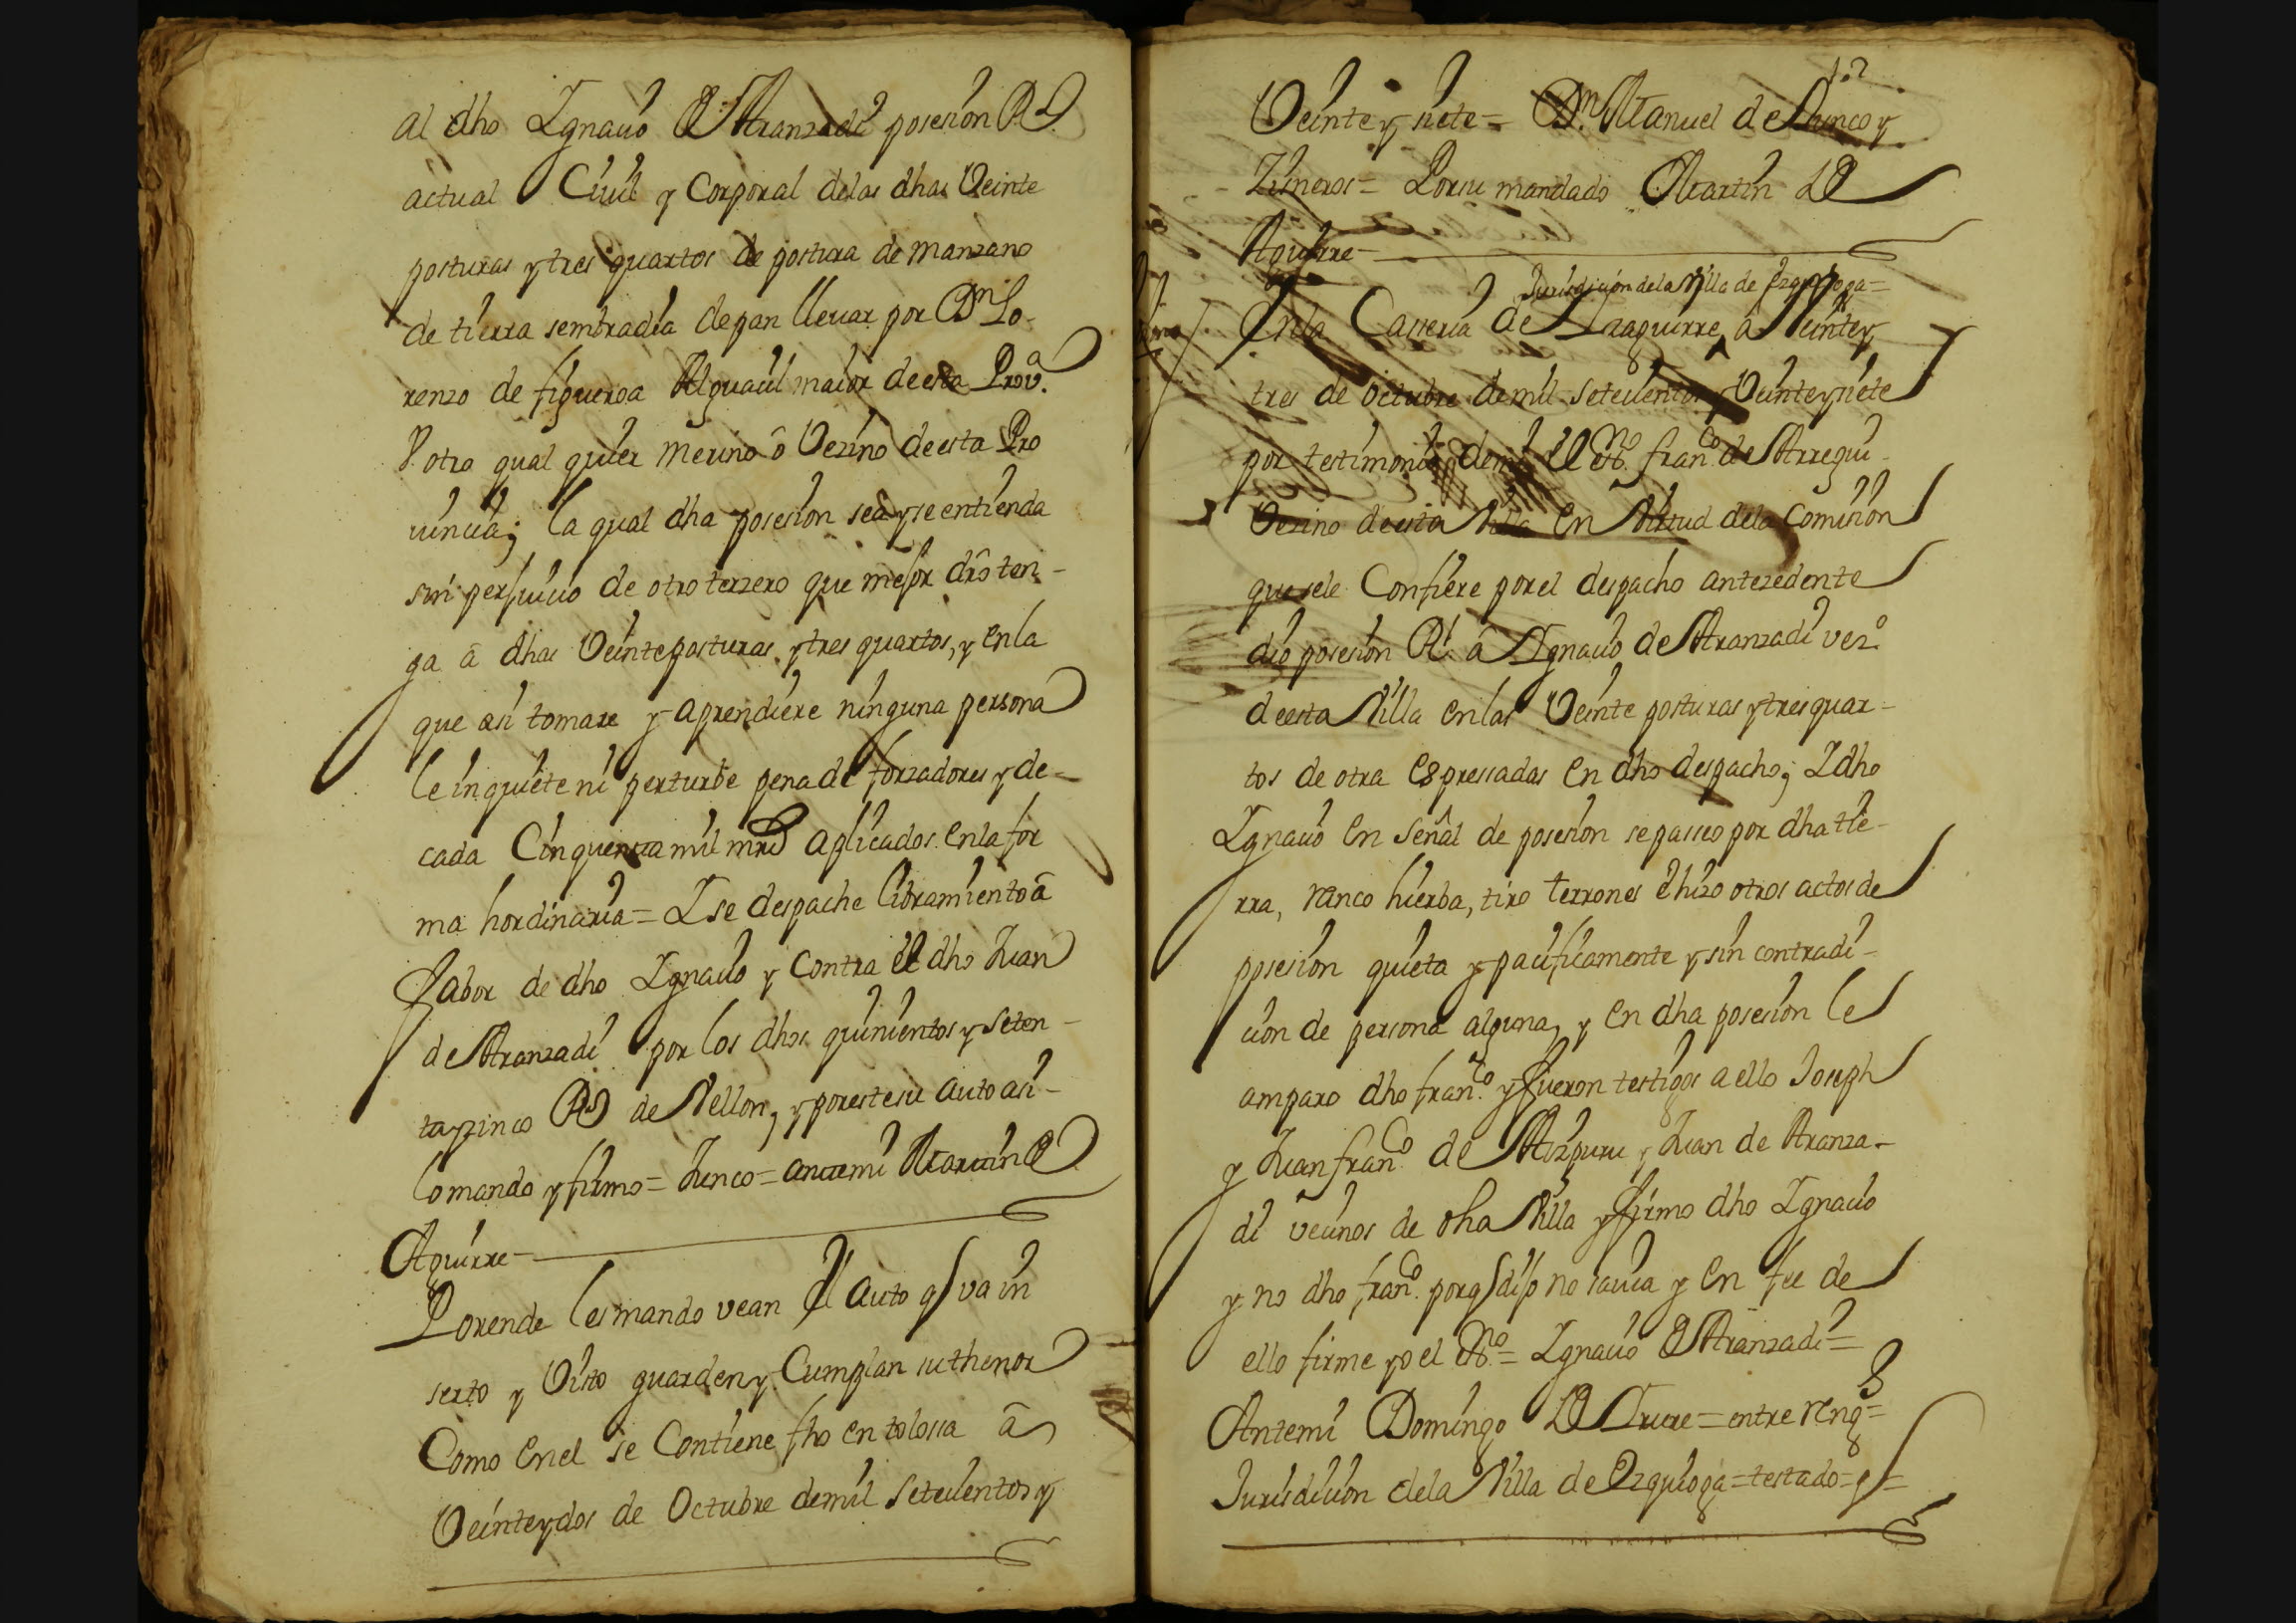 al dho Ignacio de Aranzadi posesion Rl.
actual Civil y Corporal delas dhas Veinte
posturas y tres quartos de postura de manzano
de tierra sembradia de pan llevar por Dn Lo-
renzo de figueroa Alguacil maior de esta Prova.
V otro qual quier merino ô Vezino de esta Pro
vincia; la qual dha posesion sea y se entienda
sin perjuicio de otro terzero que mejor dro ten-
ga â dhas Veinte posturas y tres quartos, y en la
que asi tomare y aprendiere ninguna persona
le inquiete ni perturbe pena de forzadores y de-
cada Cinquenta mil mrs aplicados en la for
ma hordinaria = I se despache libramiento â
fabor de dho Ignacio y contra el dho Juan
de Aranzadi por los dhos quinientos y seten-
ta y zinco Rs de Vellon, y por este su auto asi-
lo mando y firmo = Junco = ante mi Martin de
Aguirre
Por ende les mando vean el auto q va in
serto y Visto guarden y Cumplan su thenor
Como en el se Contiene fho en tolossa â
Veinte y dos de Octubre de mil setecientos y
12
Veinte y siete = Dn Manuel de Junco y
Zisneros = Por su mandado Martin de
Aguirre
Jurisdicion dela Villa de Ezquioga =
En la Casseria de Izaguirre, â Veinte y
tres de Octubre de mil setecientos y Veinte y siete
por testimonio de mi el essno. franco. de Arregui
Vezino de esta Villa en Virtud dela Comision
que se le Confiere por el despacho antezedente
dio posesion Rl. â Ignacio de Aranzadi vezo.
de esta Villa en las Veinte posturas y tres quar-
tos de otra espressadas en dho despacho; I dho
Ignacio en señal de posesion se passeo por dha tie-
rra, ranco hierba, tiro terrones e hizo otros actos de
posesion quieta y pacificamente y sin contradi-
cion de persona alguna, y en dha posesion le
amparo dho franco. y fueron testigos a ello Joseph
y Juan franco. de Aizpuru y Juan de Aranza-
di vecinos de dha Villa y firmo dho Ignacio
y no dho franco. porq dijo no savia y en fee de
ello firme yo el essno. = Ignacio de Aranzadi =
Ante mi Domingo de = entre reng =
Jurisdicion dela Villa de Ezquioga = testado = q =